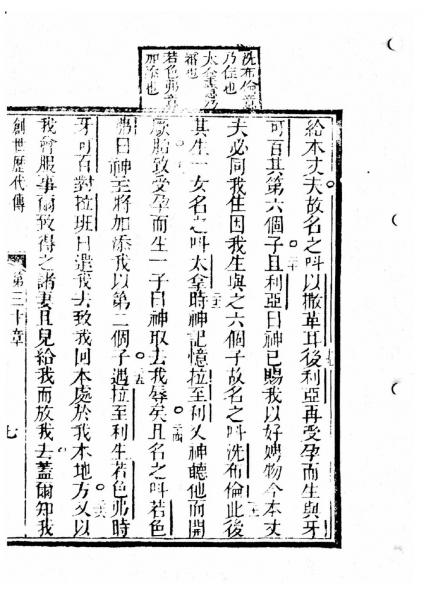 洗布倫意
乃住也
太拿意乃
審也
若色弗意
加添也
給本丈夫故名之呌以撒革耳後利亞再受孕而生與牙
可百其第六個子且利亞曰神已賜我以好娉物今本丈
夫必同我住因我生與之六個子故名之呌洗布倫此後
其生一女名之呌太拿時神記憶拉至利又神聽他而開
厥胎致受孕而生一子曰神取去我辱矣且名之呌若色
弗曰神主將加添我以第二個子遇拉至利生若色弗時
牙可百對拉班曰遣我去致我回本處於我本地方又以
我會服事爾致得之諸妻且兒給我而放我去蓋爾知我
創世歷代傳 第三十章 七